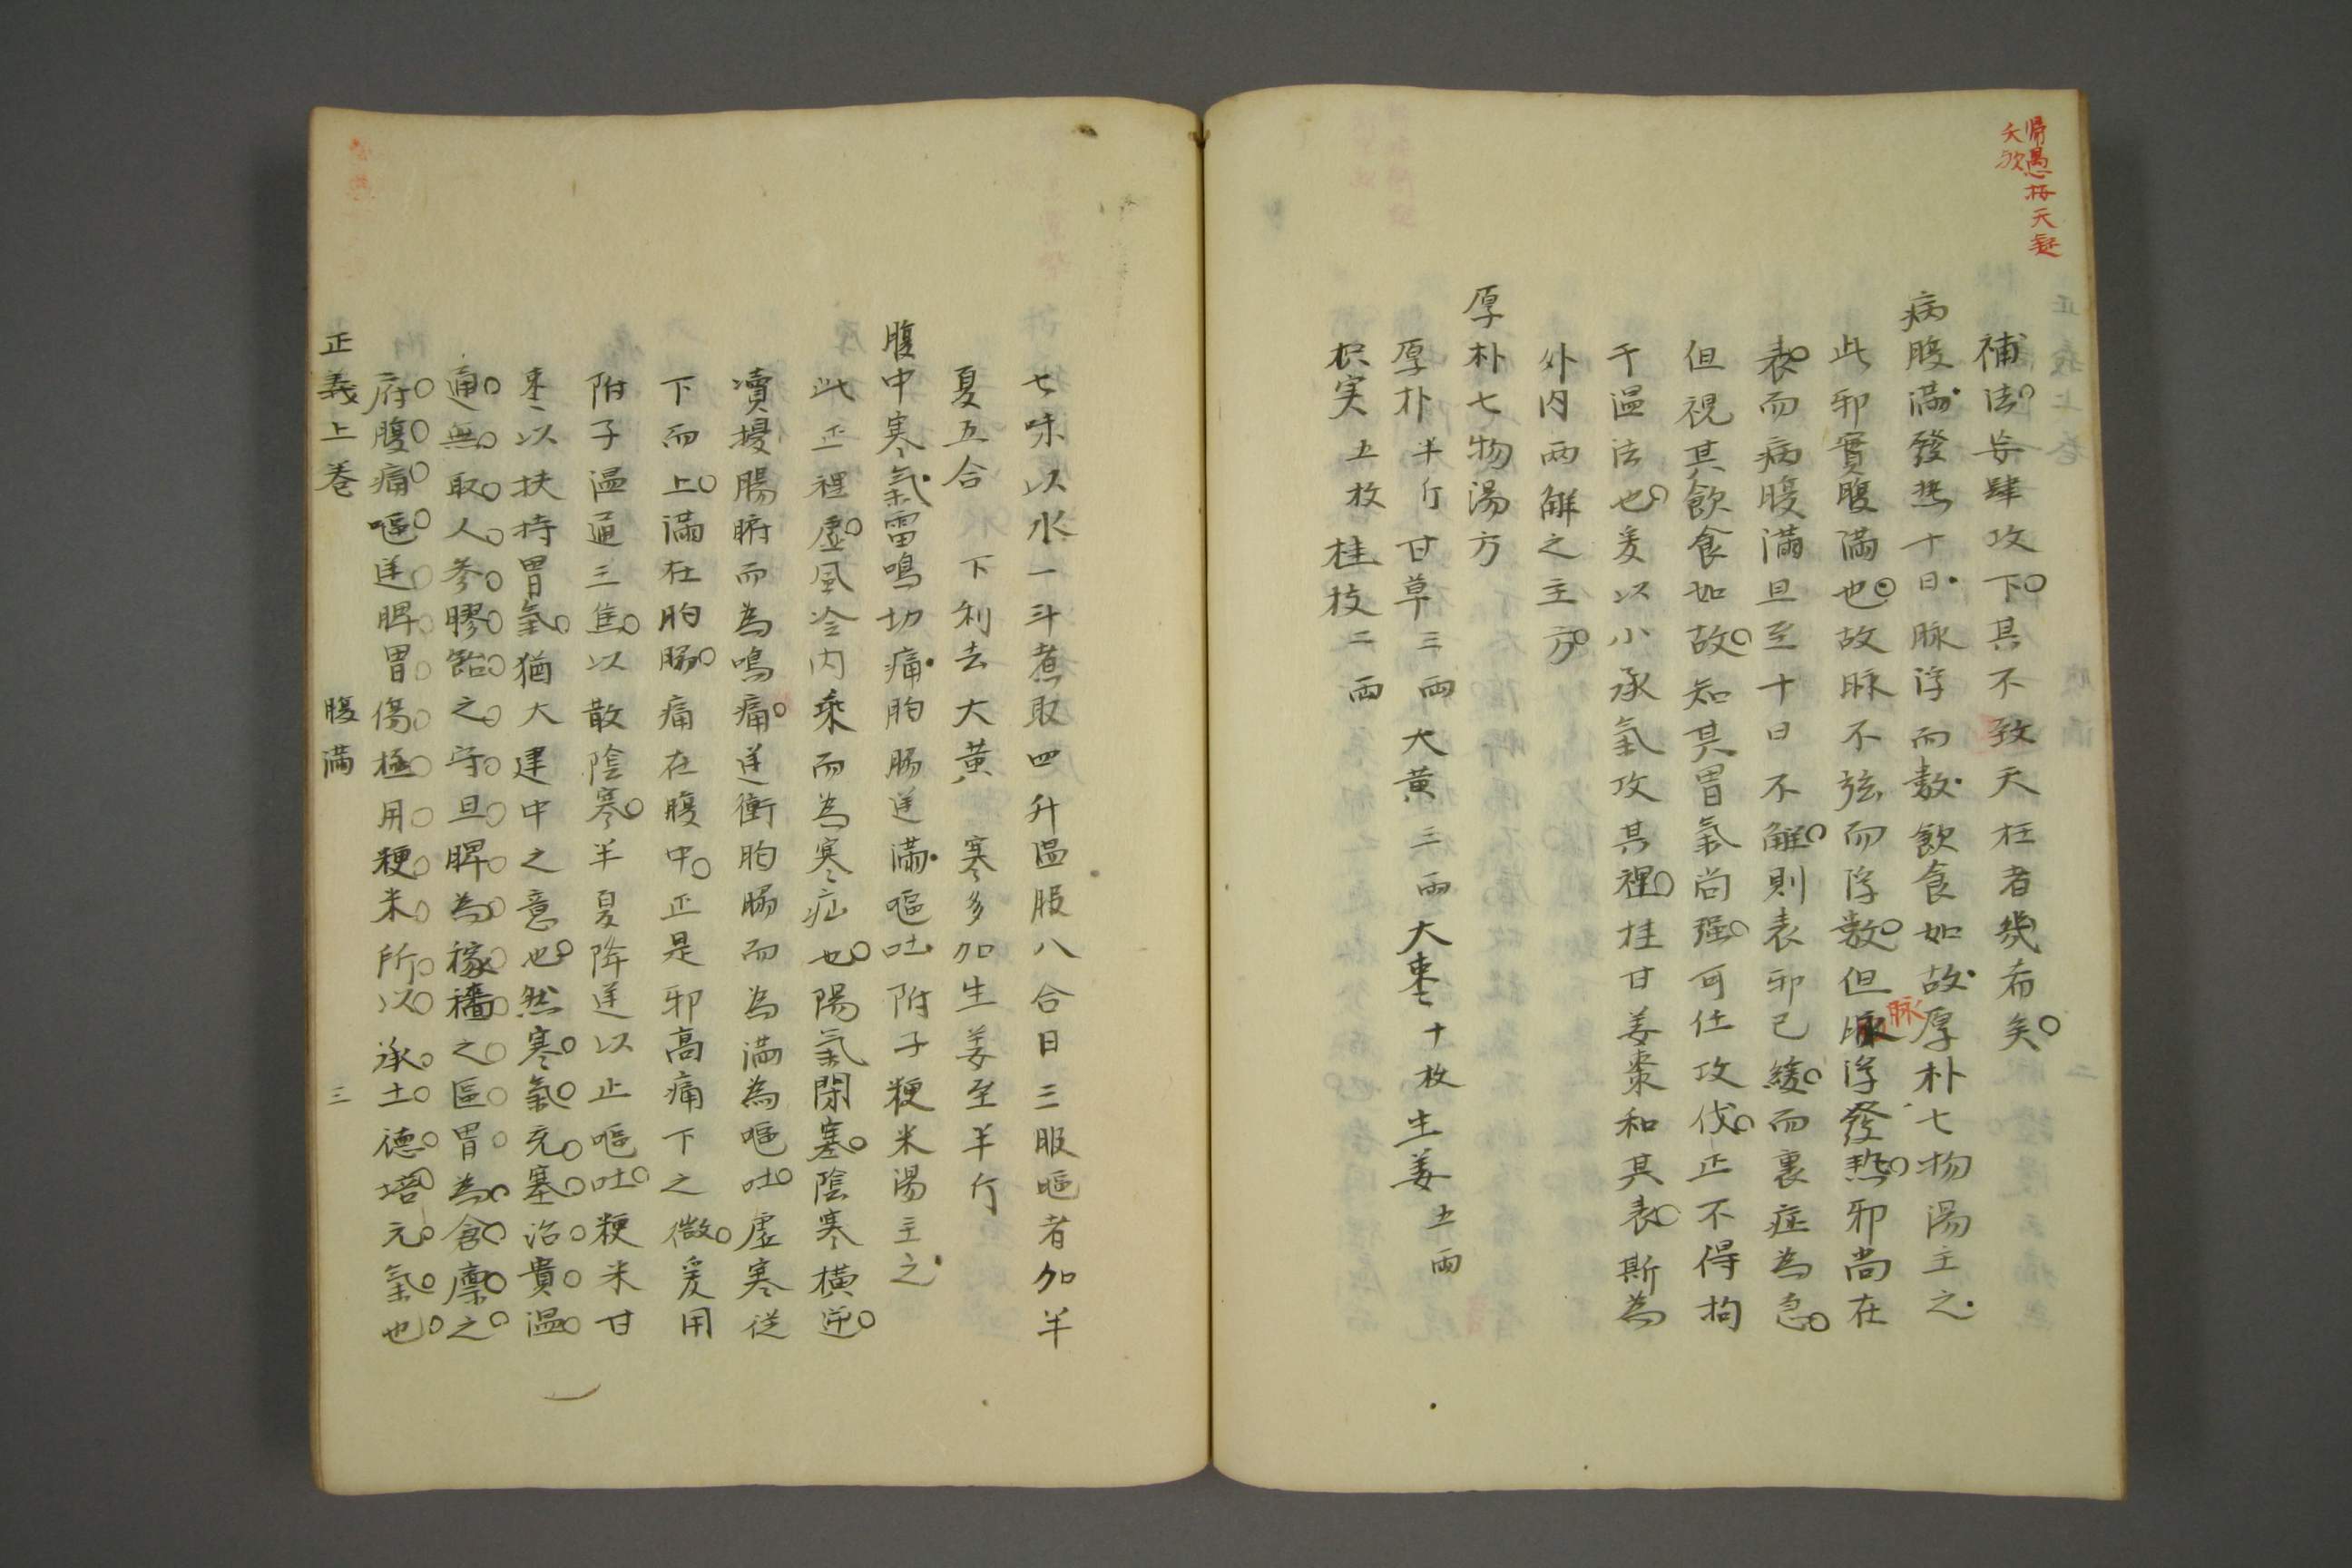 愚按天疑
夭欤
補法妄肆攻下其不致天枉者幾希矣
病腹滿發热十日脉浮而数飲食如故厚朴七物湯主之
此邪實腹滿也故脉不弦而浮数但脉浮發热邪尚在
脉
表而病腹滿且至十日不解則表邪已緩而裏症為急
但視其飲食如故知其胃氣尚强可任攻伐正不得拘
于温法也爰以小承氣攻其裡桂甘姜棗和其表斯為
外内两解之主方
厚朴七物湯方
厚朴半斤甘草三兩大黄三兩大枣十枚生姜五兩
枳实五枚桂枝二兩
七味以水一斗煮取四升温服八合日三服嘔者加半
夏五合下利去大黄寒多加生姜至半斤
腹中寒氣雷鳴切痛胸肠逆滿嘔吐附子粳米湯主之
此正裡虚風冷内乘而為寒疝也陽氣閉塞陰寒横逆
瀆擾腸腑而為鳴痛逆衝胸肠而為滿為嘔吐虚寒從
下而上滿在胸肠痛在腹中正是邪高痛下之徵爰用
附子温通三焦以散陰寒半夏降逆以止嘔吐粳米甘
枣以扶持胃氣猶大建中之意也然寒氣充塞治貴温
通無取人参膠飴之守且脾為稼穡之區胃為倉廪之
府腹痛嘔逆脾胃傷極用粳米所以承土德培元氣也
正義上卷 腹滿 三